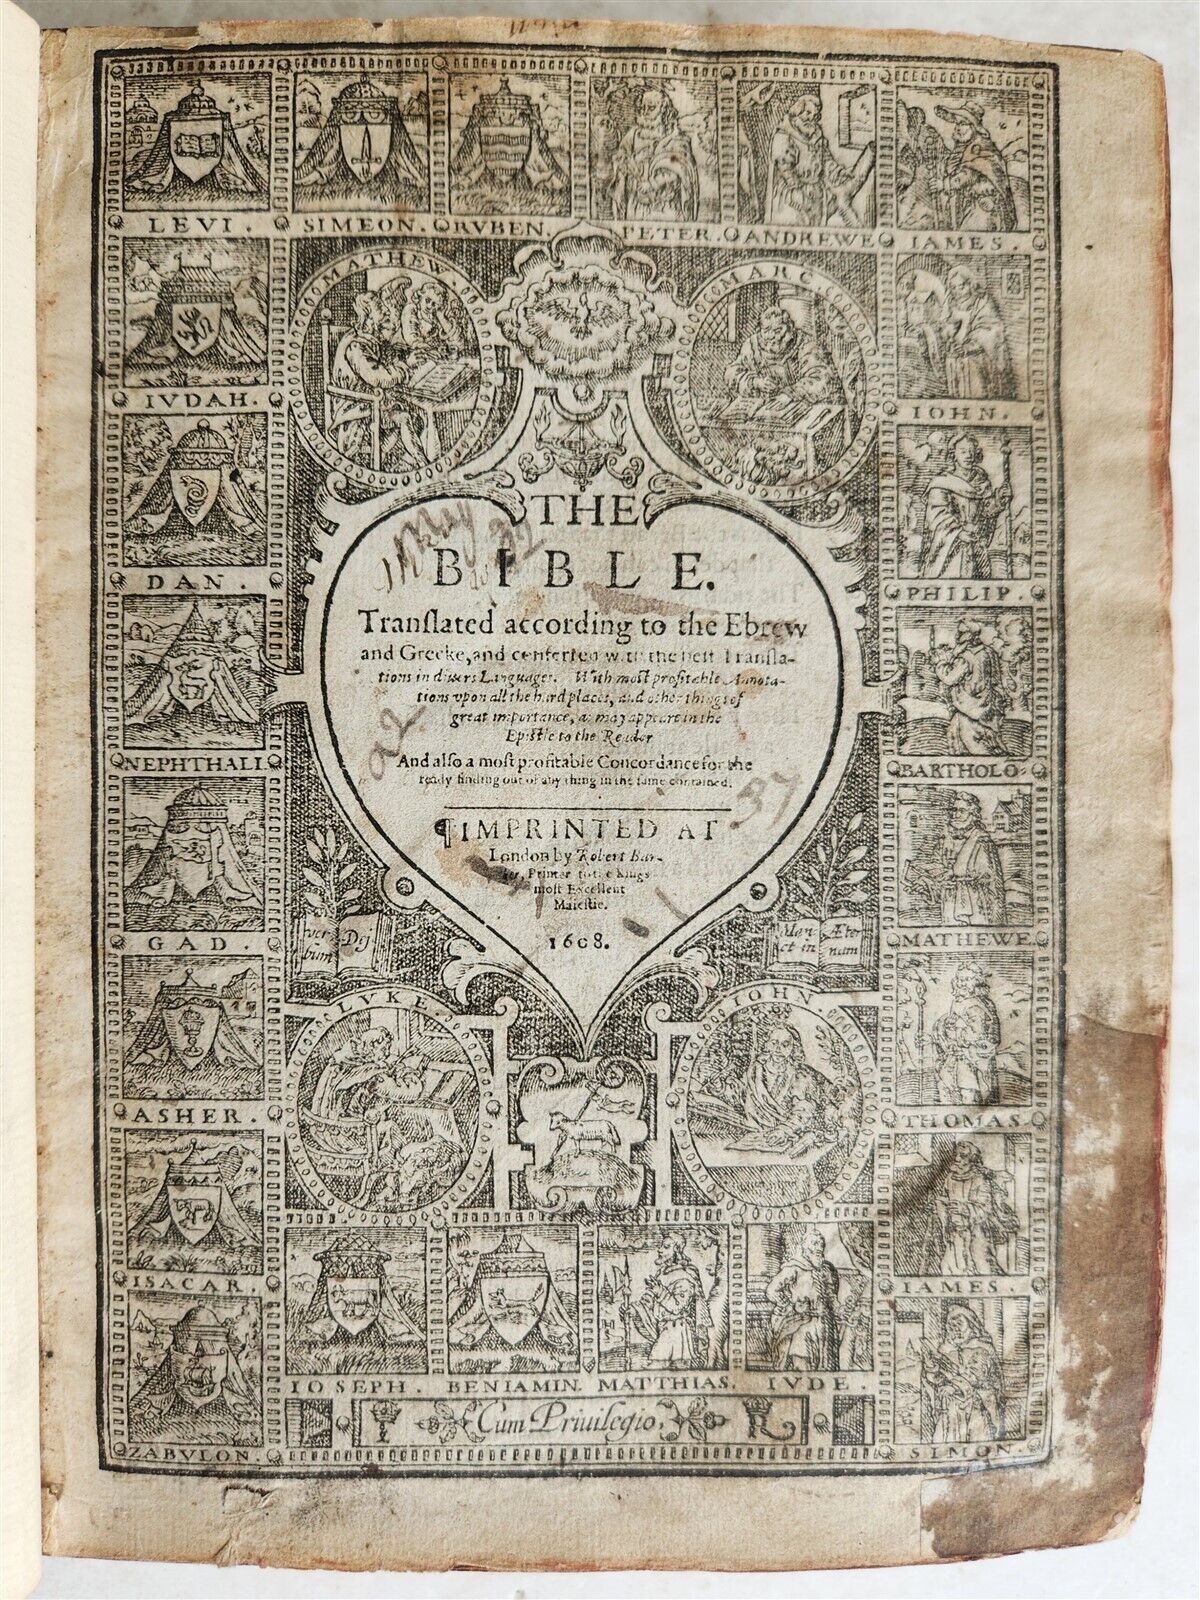 LEVI. SIMEON. RVBEN. PETER. ANDREWE IAMES.
MATHEW MARC
IVDAH. IOHN.
THE
BIBLE.
Tranſlated according to the Ebrew
and Greeke, and conferred with the beſt Tranſla-
tions in divers Languages. With moſt profitable Annota-
tions vpon all the hard places, and other things of
great importance, as may appeare in the
Epiſtle to the Reader
And alſo a moſt profitable Concordance for the
ready finding out of any thing in the ſame contained.
DAN. PHILIP.
NEPHTHALI. BARTHOLO
42 37
¶IMPRINTED AT
London by Robert Bar-
ker, Printer to the Kings
moſt Excellent
Maieſtie.
1608.
GAD. MATHEWE.
ver bum Dei
Man et in Æter num
LVKE. IOHN
ASHER. THOMAS.
ISACAR. IAMES.
IOSEPH. BENIAMIN. MATTHIAS. IVDE.
Cum Priuilegio.
ZABVLON. SIMON.